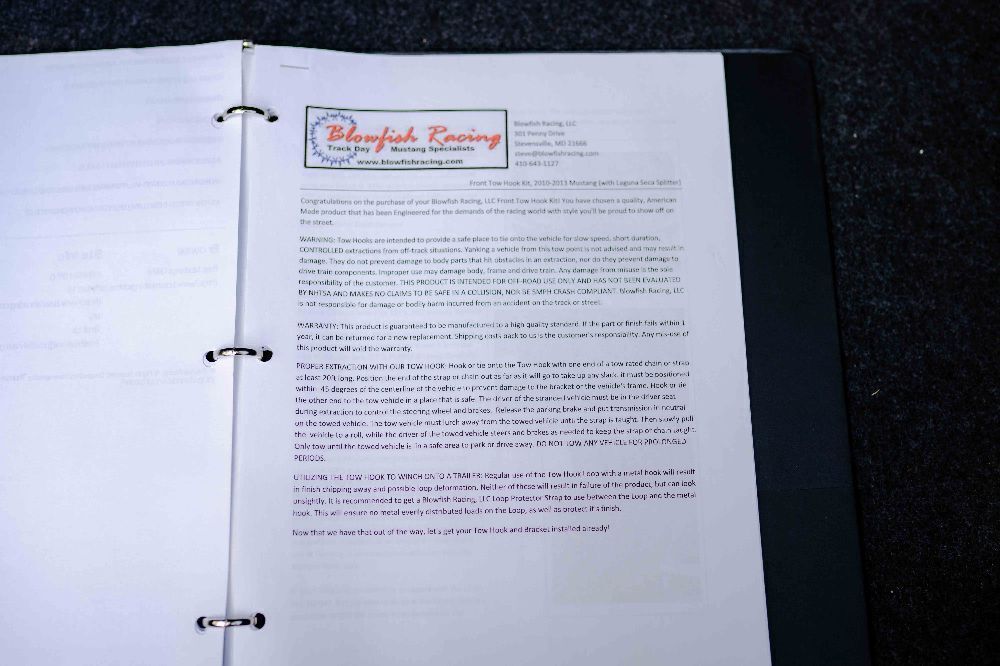 Blowfish Racing
Track Day Mustang Specialists
www.blowfishracing.com
Blowfish Racing, LLC
301 Penny Drive
Stevensville, MD 21666
steve@blowfishracing.com
410-643-1127
Front Tow Hook Kit, 2010-2013 Mustang (with Laguna Seca Splitter)
Congratulations on the purchase of your Blowfish Racing, LLC Front Tow Hook Kit! You have chosen a quality, American
Made product that has been Engineered for the demands of the racing world with style you'll be proud to show off on
the street.
WARNING: Tow Hooks are intended to provide a safe place to tie onto the vehicle for slow speed, short duration,
CONTROLLED extractions from off-track situations. Yanking a vehicle from this tow point is not advised and may result in
damage. They do not prevent damage to body parts that hit obstacles in an extraction, nor do they prevent damage to
drive train components. Improper use may damage body, frame and drive train. Any damage from misuse is the sole
responsibility of the customer. THIS PRODUCT IS INTENDED FOR OFF-ROAD USE ONLY AND HAS NOT BEEN EVALUATED
BY NHTSA AND MAKES NO CLAIMS TO BE SAFE IN A COLLISION, NOR BE 5MPH CRASH COMPLIANT. Blowfish Racing, LLC
is not responsible for damage or bodily harm incurred from an accident on the track or street.
WARRANTY: This product is guaranteed to be manufactured to a high quality standard. If the part or finish fails within 1
year, it can be returned for a new replacement. Shipping costs back to us is the customer's responsibility. Any mis-use of
this product will void the warranty.
PROPER EXTRACTION WITH OUR TOW HOOK: Hook or tie onto the Tow Hook with one end of a tow rated chain or strap
at least 20ft long. Position the end of the strap or chain out as far as it will go to take up any slack. It must be positioned
within 45 degrees of the centerline of the vehicle to prevent damage to the bracket or the vehicle's frame. Hook or tie
the other end to the tow vehicle in a place that is safe. The driver of the stranded vehicle must be in the driver seat
during extraction to control the steering wheel and brakes. Release the parking brake and put transmission in neutral
on the towed vehicle. The tow vehicle must lurch away from the towed vehicle until the strap is taught. Then slowly pull
the vehicle to a roll, while the driver of the towed vehicle steers and brakes as needed to keep the strap or chain taught.
Only tow until the towed vehicle is in a safe area to park or drive away. DO NOT TOW ANY VEHICLE FOR PROLONGED
PERIODS.
UTILIZING THE TOW HOOK TO WINCH ONTO A TRAILER: Regular use of the Tow Hook Loop with a metal hook will result
in finish chipping away and possible loop deformation. Neither of these will result in failure of the product, but can look
unsightly. It is recommended to get a Blowfish Racing, LLC Loop Protector Strap to use between the Loop and the metal
hook. This will ensure no metal evenly distributed loads on the Loop, as well as protect it's finish.
Now that we have that out of the way, let's get your Tow Hook and Bracket installed already!